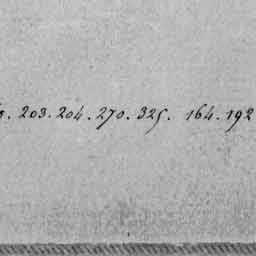 . 203. 204. 270. 325. 164. 192